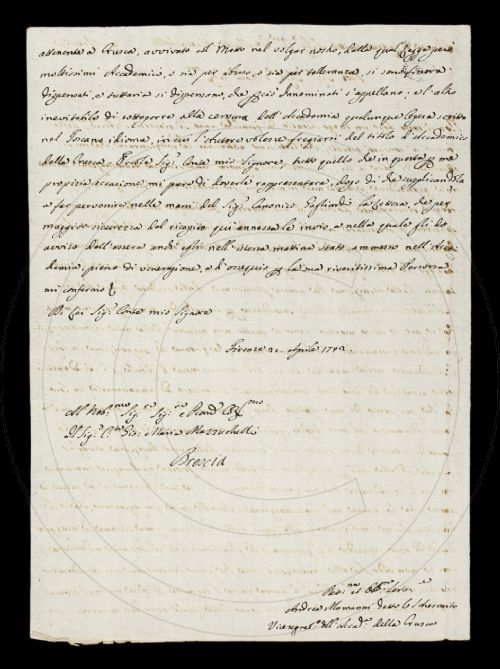 attenente a Crusca, avvivato col Motto nel volgar nostro, dalla qual Legge però
moltissimi Accademici, o sia per abuso, o sia per tolleranza, si sono finora
dispensati, e tuttavia si dispensano, che perciò Innominati s'appellano; e l'altro
inevitabile di sottoporre alla censura dell'Accademia qualunque Opera scritta
nel Toscano idioma, in cui l'Autore volesse fregiarsi del titolo d'Accademico
della Crusca. Eccole Sig.r Conte mio Signore, tutto quello che in questa per me
propizia occasione mi pare di doverle rappresentare, dopo di che supplicandola
a far pervenire nelle mani del Sig.r Canonico Gagliardi la lettera, che per
maggior sicurezza del ricapito qui annessa le invio, e nella quale gli do
avviso dell'essere anch'egli nell'istessa mattina stato ammesso nell'Acca-
demia, pieno di venerazione, e d'ossequio per la sua riveritissima Persona
mi confermo
Di Lei Sig.r Conte mio Signore
Firenze 21. Aprile 1742.
Sig.re Sig.re e Pron.
Il Sig.r C.te Gio: Maria Mazzuchelli
Brescia
Andrea Alamanni detto lo Schermito
Vicesegret.o dell'Accad.a della Crusca